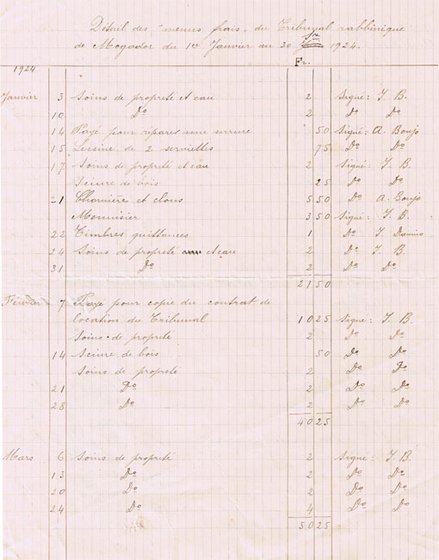 Détail des "menus frais" du Tribunal rabbinique
de Mogador du 1er Janvier au 30 Juin 1924.
Fr.
1924
Janvier 3 Soins de propreté et eau 2 Signé: J. B.
10 Do 2 Do Do
14 Payé pour réparer une serrure 50 Signé: A. Boujo
15 Lessive de 2 serviettes 75 Do Do
17 Soins de propreté et eau 2 Signé: J. B.
Sciure de bois 25 Do Do
21 Charnière et clous 5 50 Do A. Boujo
Menuisier 3 50 Signé: J. B.
22 Timbres quittances 1 Do J.
24 Soins de propreté et eau 2 Do J. B.
31 Do 2 Do Do
21 50
Février 7 Payé pour copie du contrat de
location du Tribunal 10 25 Signé: J. B.
Soins de propreté 2 Do Do
14 Sciure de bois 50 Do Do
Soins de propreté 2 Do Do
21 Do 2 Do Do
28 Do 2 Do Do
40 25
Mars 6 Soins de propreté 2 Signé: J. B.
13 Do 2 Do Do
20 Do 2 Do Do
24 Do 4 Do Do
50 25